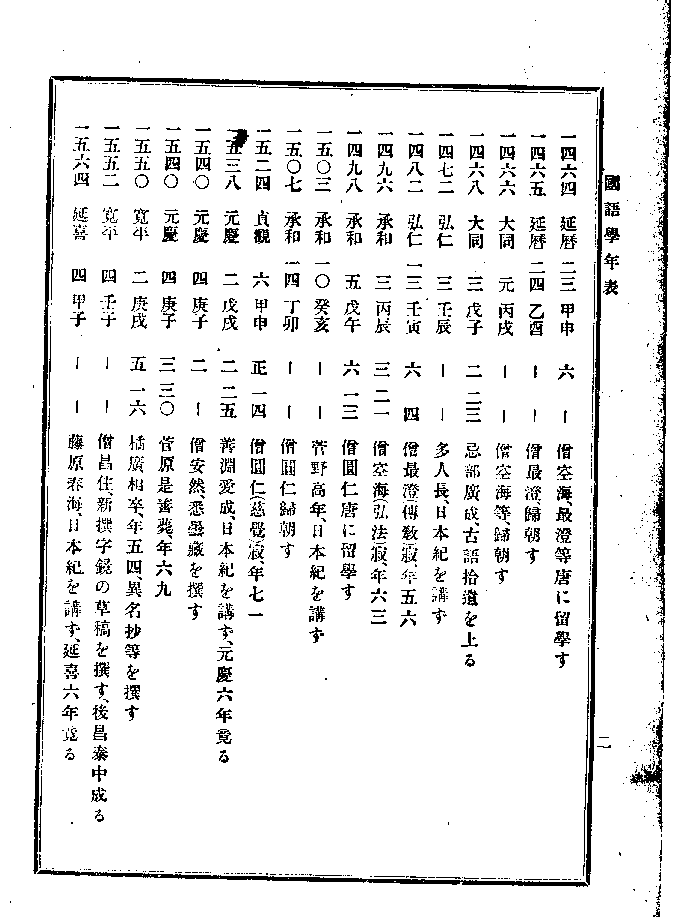 國語學年表
二
一四六四 延曆 二三 甲申 六 ー 僧空海、最澄等唐に留學す
一四六五 延曆 二四 乙酉 ー ー 僧最澄歸朝す
一四六六 大同 元 丙戌 ー ー 僧空海等、歸朝す
一四六八 大同 三 戊子 二 二三 忌部廣成、古語拾遺を上る
一四七二 弘仁 三 壬辰 ー ー 多人長、日本紀を講ず
一四八二 弘仁 一三 壬寅 六 四 僧最澄(傳敎)寂、年五六
一四九六 承和 三 丙辰 三 二一 僧空海(弘法)寂、年六三
一四九八 承和 五 戊午 六 一三 僧圓仁唐に留學す
一五〇三 承和 一〇 癸亥 ー ー 菅野高年、日本紀を講ず
一五〇七 承和 一四 丁卯 ー ー 僧圓仁歸朝す
一五二四 貞觀 六 甲申 正 一四 僧圓仁(慈覺)寂、年七一
一五三八 元慶 二 戊戌 二 二五 善淵愛成日本紀を講ず、元慶六年竟る
一五四〇 元慶 四 庚子 二 ー 僧安然、悉曇藏を撰す
一五四〇 元慶 四 庚子 三 三〇 菅原是善薨、年六九
一五五〇 寬平 二 庚戌 五 一六 橘廣相卒、年五四、異名抄等を撰す
一五五二 寬平 四 壬子 ー ー 僧昌住、新撰字鏡の草稿を撰す、後昌泰中成る
一五六四 延喜 四 甲子 ー ー 藤原春海日本紀を講ず、延喜六年竟る